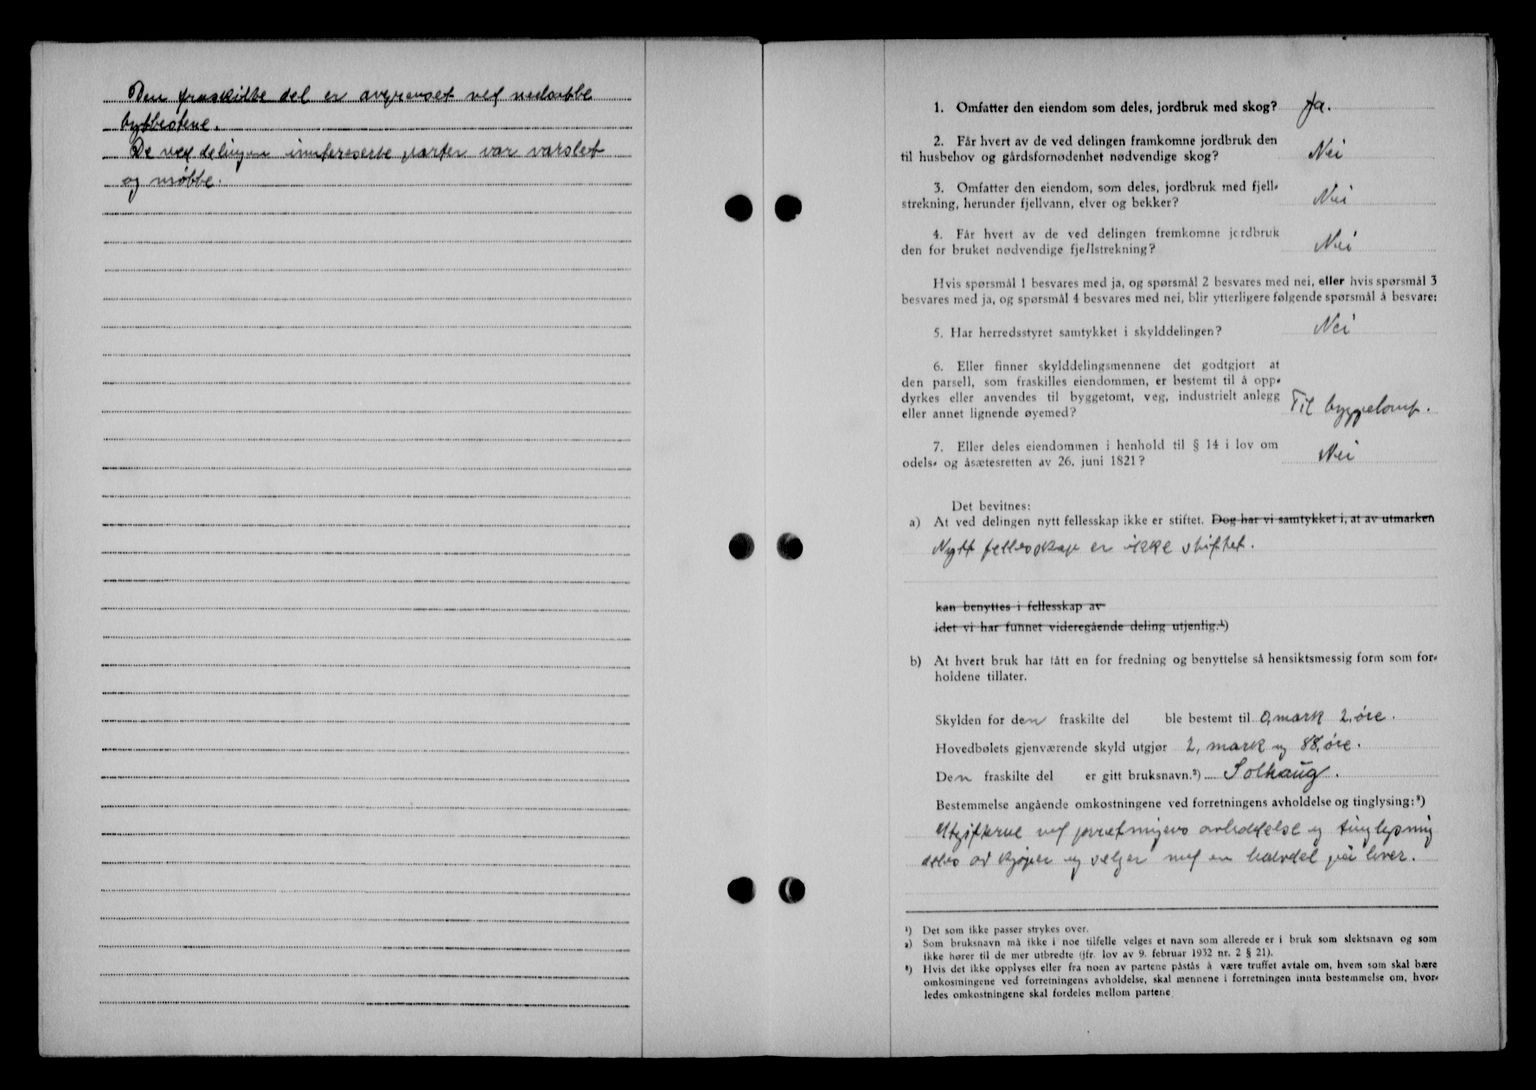 Den fraskilte del er avgrenset ved nedsatte
byttestene.
De ved delingen interesserte parter var varslet
og møtte.
1. Omfatter den eiendom som deles, jordbruk med skog? Ja.
2. Får hvert av de ved delingen framkomne jordbruk den
til husbehov og gårdsfornødenhet nødvendige skog? Nei
3. Omfatter den eiendom, som deles, jordbruk med fjell-
strekning, herunder fjellvann, elver og bekker? Nei
4. Får hvert av de ved delingen fremkomne jordbruk
den for bruket nødvendige fjellstrekning? Nei
Hvis spørsmål 1 besvares med ja, og spørsmål 2 besvares med nei, eller hvis spørsmål 3
besvares med ja, og spørsmål 4 besvares med nei, blir ytterligere følgende spørsmål å besvare:
5. Har herredsstyret samtykket i skylddelingen? Nei
6. Eller finner skylddelingsmennene det godtgjort at
den parsell, som fraskilles eiendommen, er bestemt til å opp-
dyrkes eller anvendes til byggetomt, veg, industrielt anlegg
eller annet lignende øyemed? Til byggetomt.
7. Eller deles eiendommen i henhold til § 14 i lov om
odels- og åsætesretten av 26. juni 1821? Nei
Det bevitnes:
a) At ved delingen nytt fellesskap ikke er stiftet. Dog har vi samtykket i, at av utmarken
Nytt fellesskap er ikke stiftet.
kan benyttes i fellesskap av
idet vi har funnet videregående deling utjenlig.¹)
b) At hvert bruk har fått en for fredning og benyttelse så hensiktsmessig form som for-
holdene tillater.
Skylden for den fraskilte del ble bestemt til 0, mark 2, øre.
Hovedbølets gjenværende skyld utgjør 2, mark og 88, øre.
Den fraskilte del er gitt bruksnavn.²) Solhaug.
Bestemmelse angående omkostningene ved forretningens avholdelse og tinglysing:³)
Utgifterne ved forretningens avholdelse og tinglysning
deles av kjøper og selger med en halvdel på hver.
¹) Det som ikke passer strykes over.
²) Som bruksnavn må ikke i noe tilfelle velges et navn som allerede er i bruk som slektsnavn og som
ikke hører til de mer utbredte (jfr. lov av 9. februar 1932 nr. 2 § 21).
³) Hvis det ikke opplyses eller fra noen av partene påstås å være truffet avtale om, hvem som skal bære
omkostningene ved forretningens avholdelse, skal mennene i forretningen innta bestemmelse om, hvor-
ledes omkostningene skal fordeles mellom partene